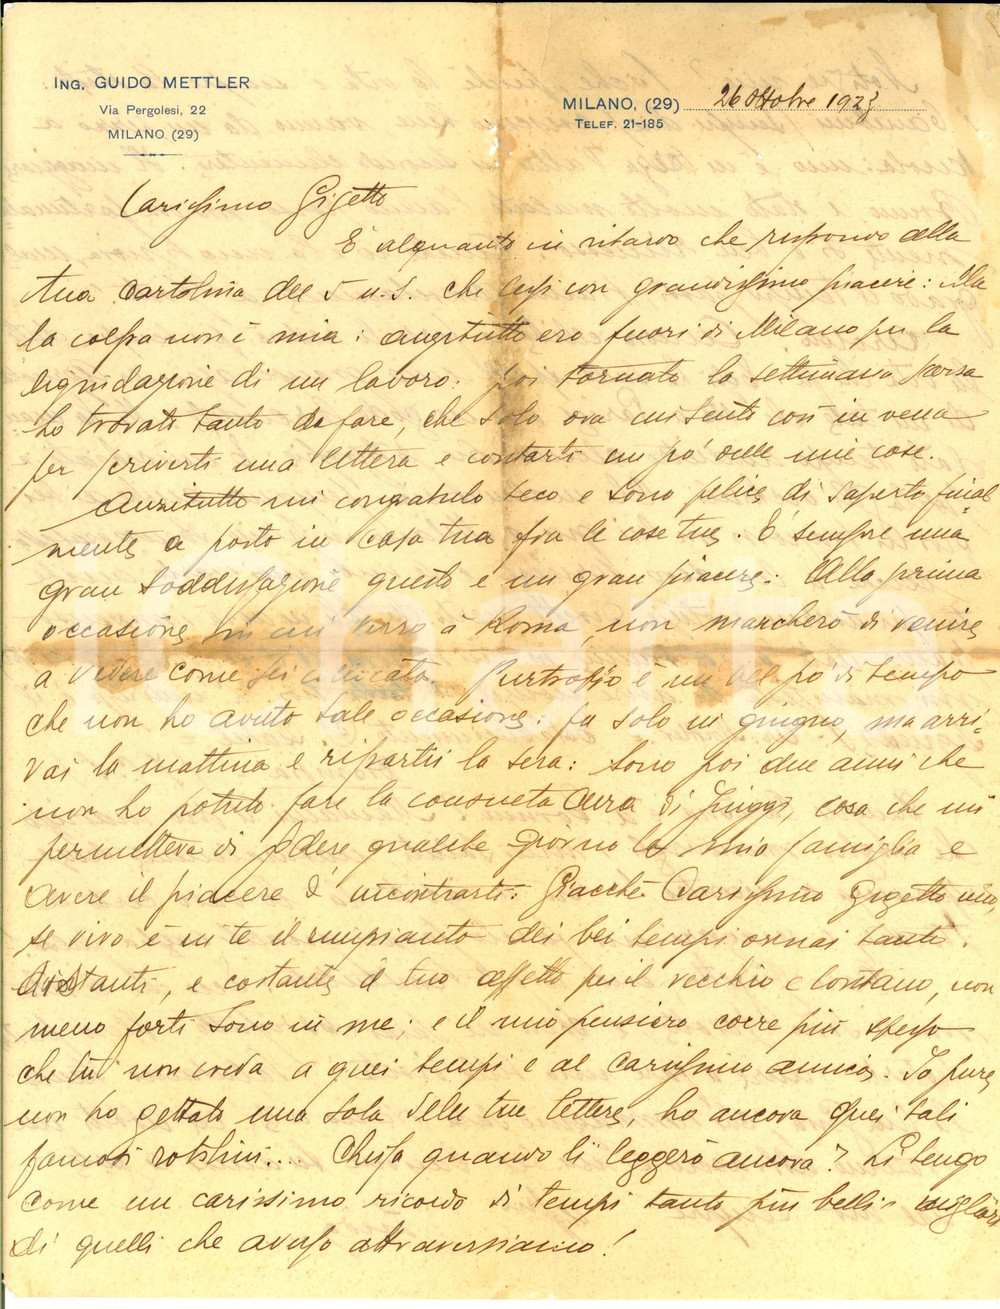 ING. GUIDO METTLER
Via Pergolesi, 22
MILANO (29)
MILANO, (29) 26 Ottobre 1923
TELEF. 21-185
Carissimo Gigetto
È alquanto in ritardo che rispondo alla
tua cartolina del 5 u.s. che lessi con grandissimo piacere: Ma
la colpa non è mia: anzitutto ero fuori di Milano per la
liquidazione di un lavoro: poi tornato la settimana scorsa
ho trovato tanto da fare, che solo ora mi sento così in vena
per scriverti una lettera e contarti un pò delle mie cose.
Anzitutto mi congratulo teco e sono felice di saperti final
mente a posto in casa tua fra le cose tue. È sempre una
gran soddisfazione questo e un gran piacere. Alla prima
occasione in cui verrò a Roma, non mancherò di venire
a vedere come sei collocato. Purtroppo è un bel pò di tempo
che non ho avuto tale occasione: fu solo in giugno, ma arri=
vai la mattina e ripartii la sera: Sono poi due anni che
non ho potuto fare la consueta cura di Fiuggi, cosa che mi
permetteva di vedere qualche giorno la mia famiglia e
avere il piacere d'incontrarti. Giacchè Carissimo Gigetto mio,
se vivo è in te il rimpianto dei bei tempi ormai tanto
distanti, e costante il tuo affetto per il vecchio e lontano, non
meno forti sono in me; e il mio pensiero corre più spesso
che tu non creda a quei tempi e al carissimo amico. Io pure
non ho gettato una sola delle tue lettere, ho ancora quei tali
famosi rotolini.... Chissà quando li leggerò ancora? Li tengo
come un carissimo ricordo di tempi tanto più belli e migliori
di quelli che adesso attraversiamo!